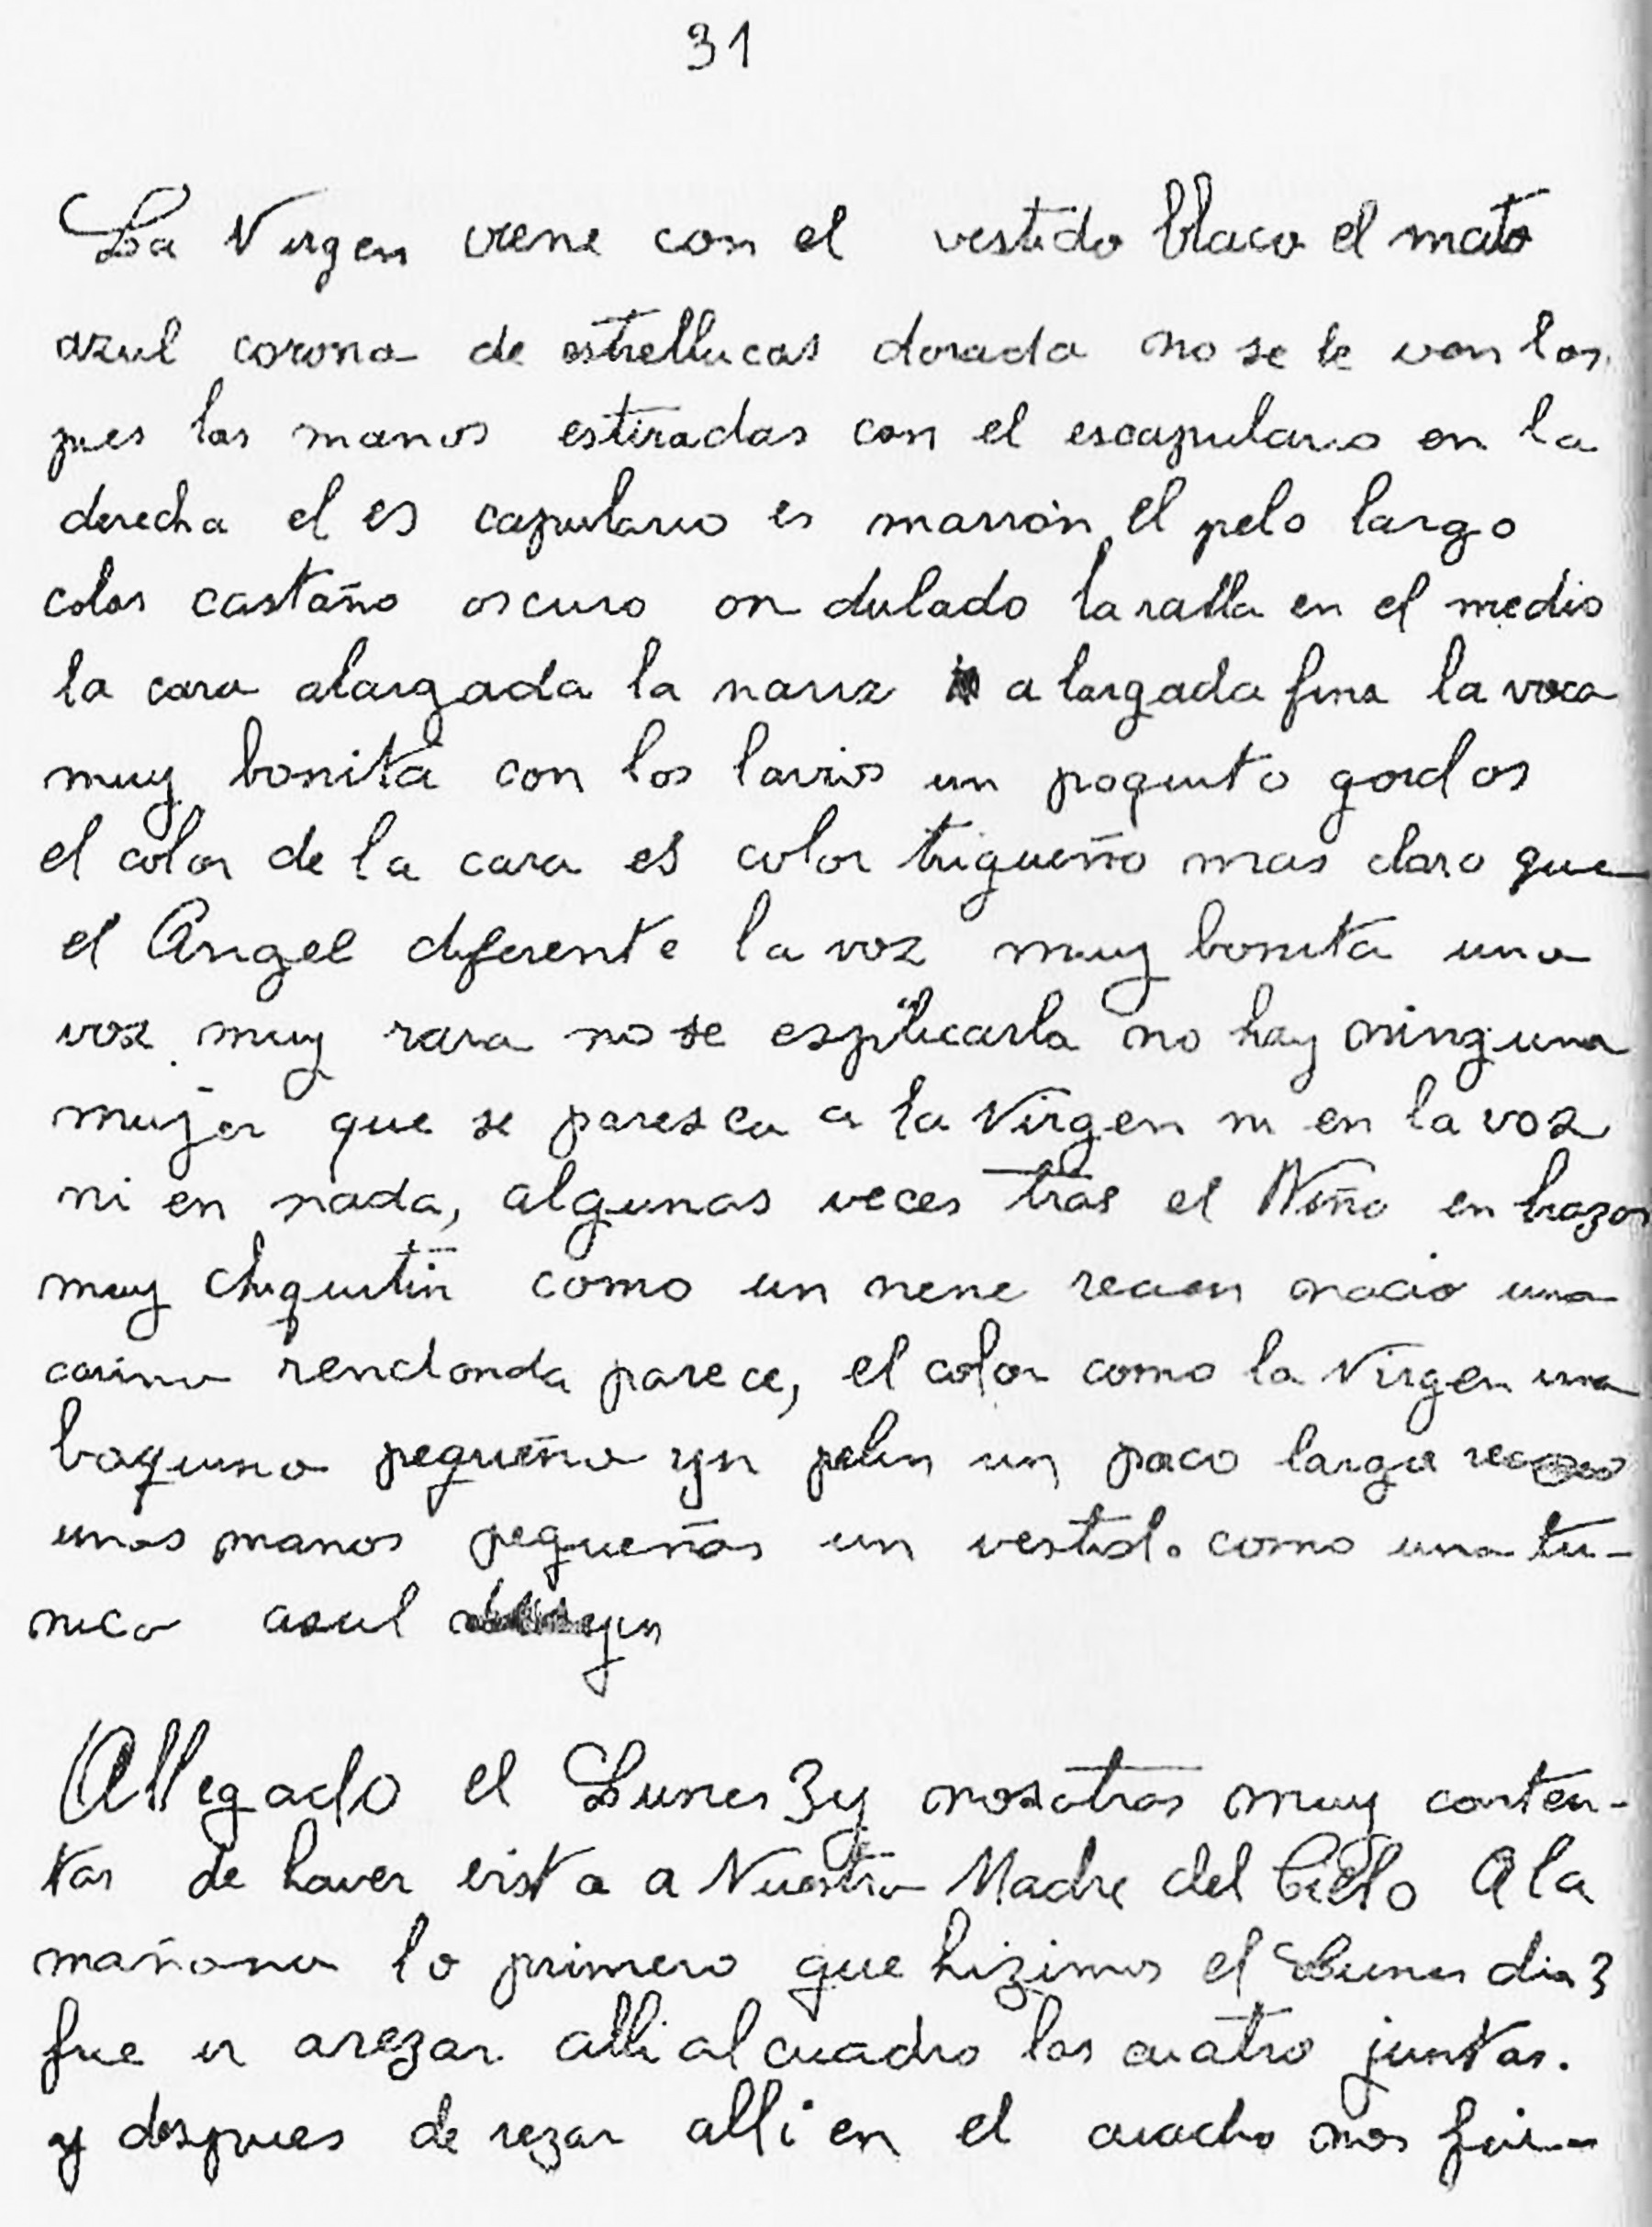 31
La Virgen viene con el vestido blaco el mato
azul corona de estrellucas dorada no se le ven los
pies las manos estiradas con el escapulario en la
derecha el es capulario es marrón, el pelo largo
color castaño oscuro on dulado la ralla en el medio
la cara alargada la nariz a largada fina la voca
muy bonita con los lavios un poquito gordos
el color de la cara es color trigueño mas claro que
el Angel diferente la voz muy bonita una
voz muy rara no se esplicarla no hay ninguna
mujer que se paresca a la Virgen ni en la voz
ni en nada, algunas veces trae el Niño en brazos
muy chiquitin como un nene recien nacio una
carina rendonda parece, el color como la Virgen una
boquina pequeña y un pelin un poco largo
unas manos pequeñas un vestido como una tu-
nica asul
Allegado el Lunes 3 y nosotras muy conten-
tas de haver vist a a Nuestra Madre del Cielo A la
mañana lo primero que hizimos el Lunes dia 3
fue ir arezar alli al cuadro las cuatro juntas.
y despues de rezar alli en el cuadro nos